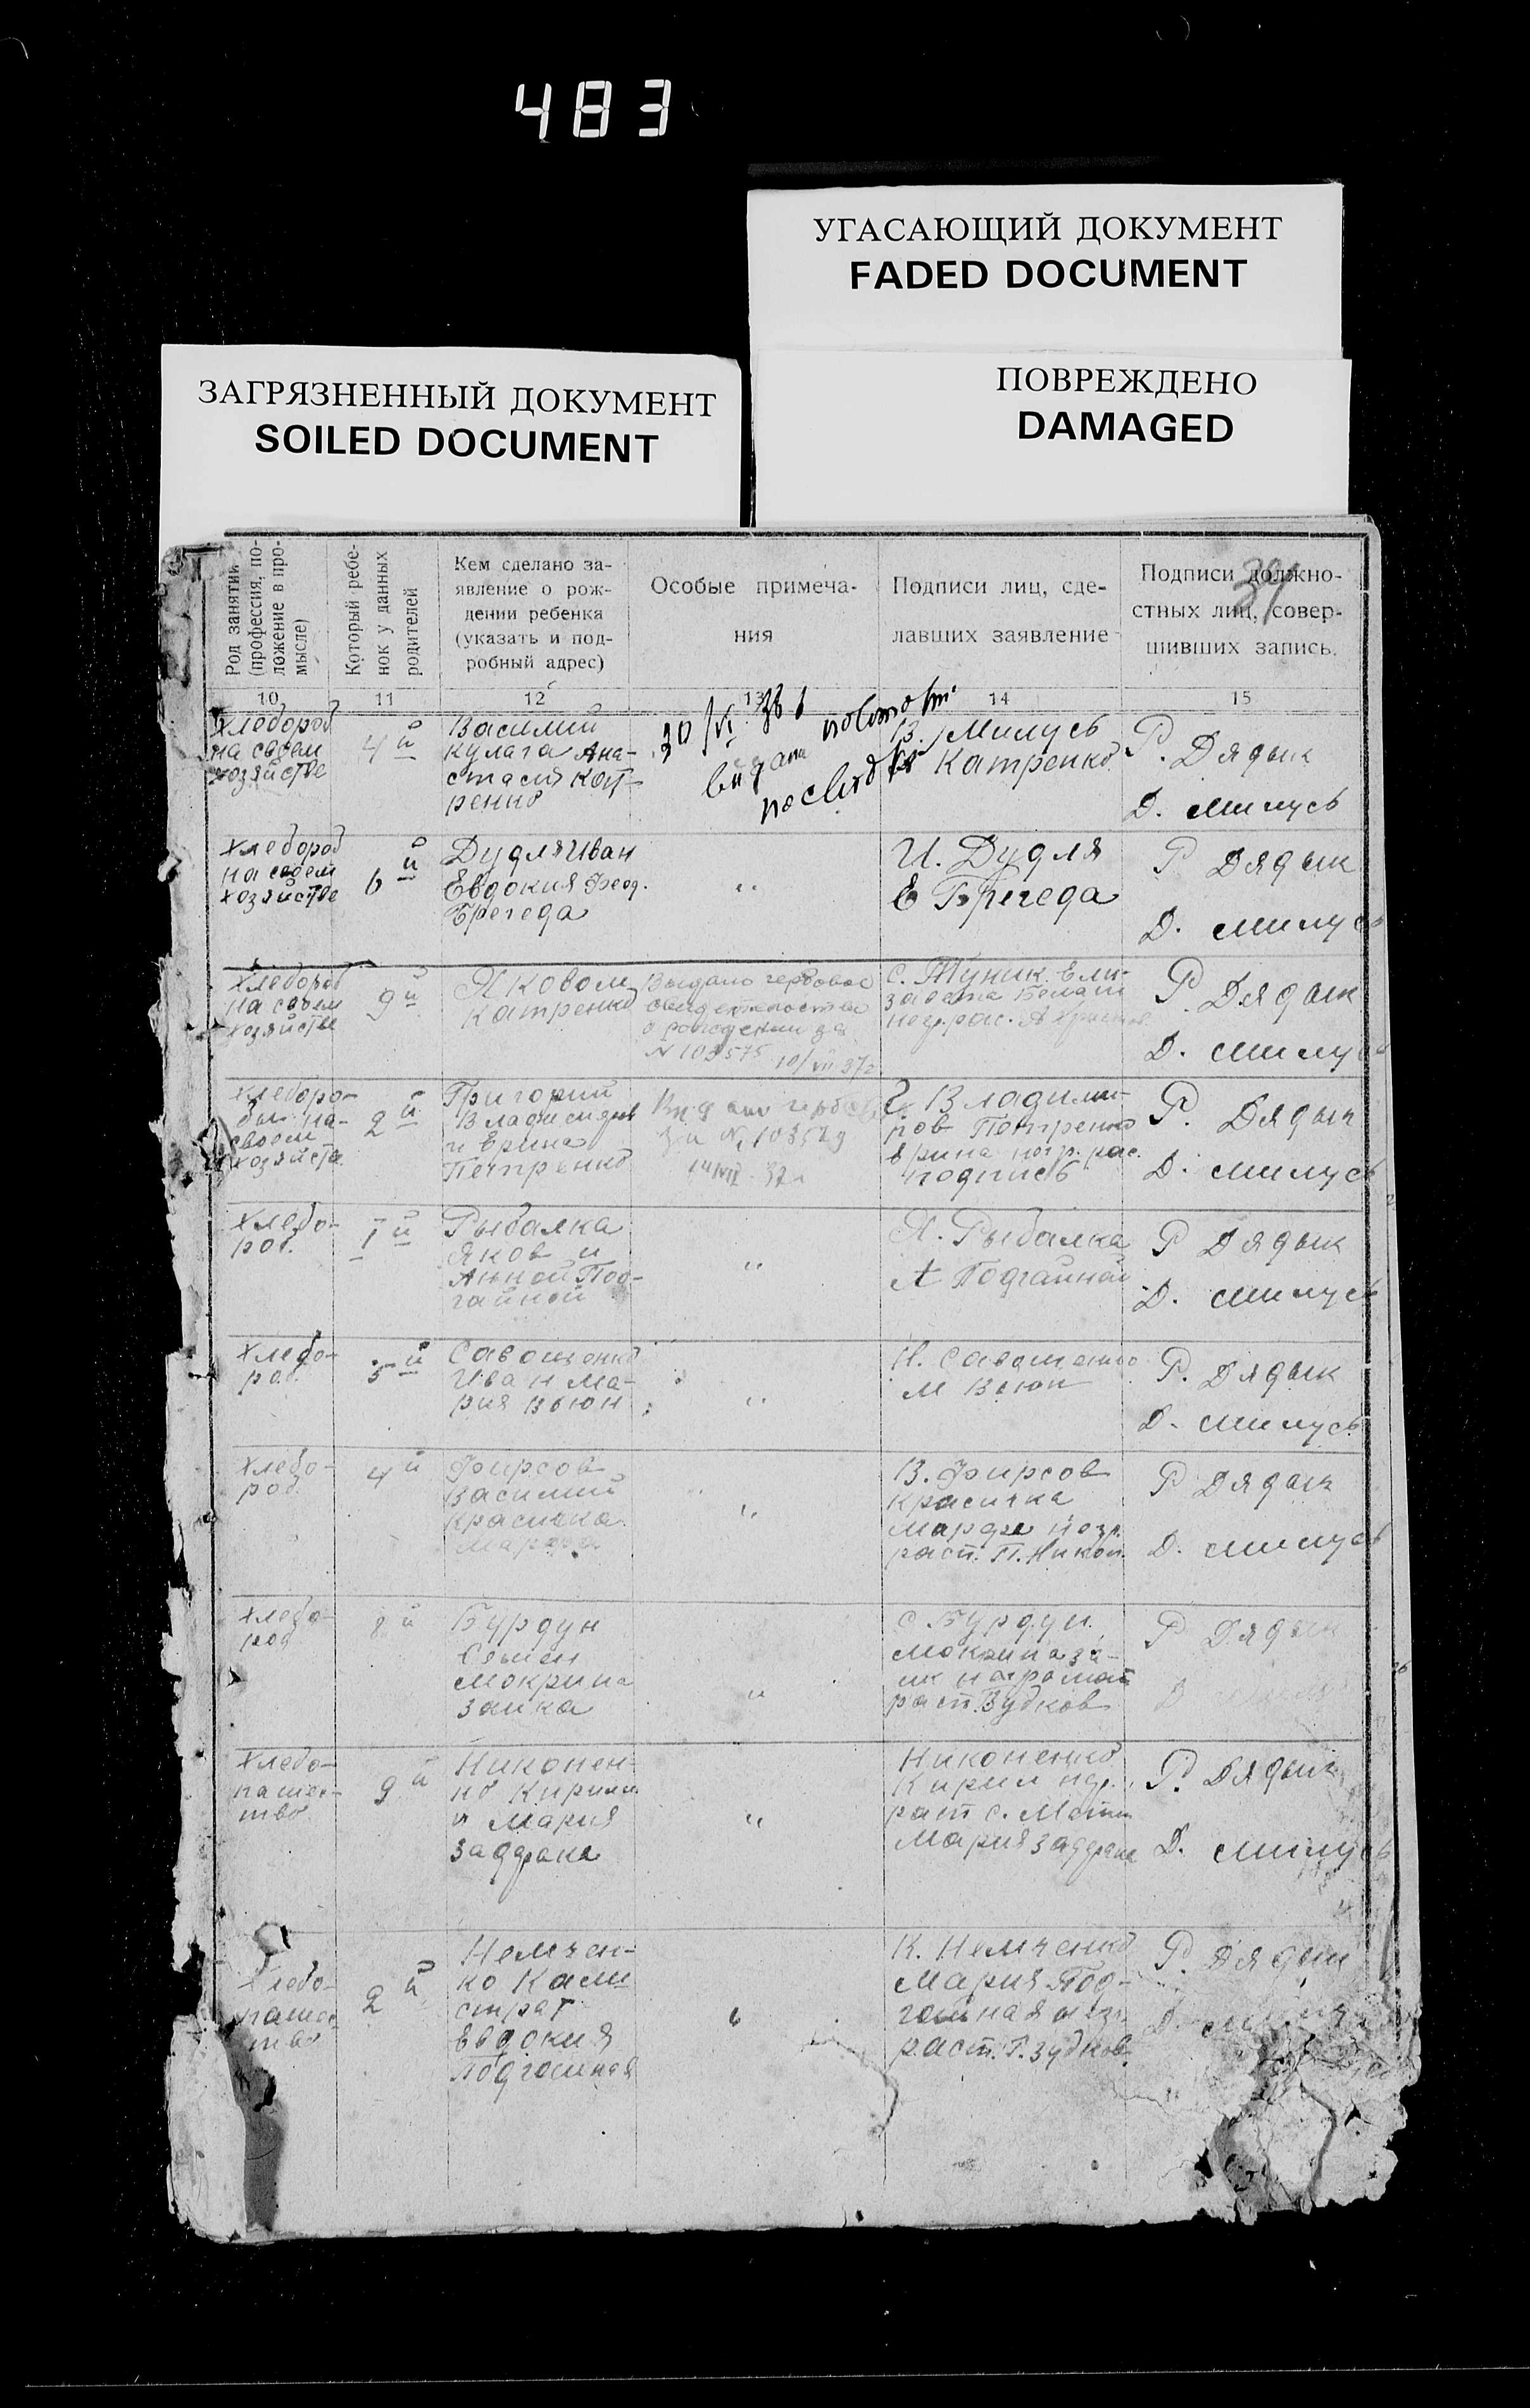 483
УГАСАЮЩИЙ ДОКУМЕНТ
FADED DOCUMENT
ЗАГРЯЗНЕННЫЙ ДОКУМЕНТ
SOILED DOCUMENT
ПОВРЕЖДЕНО
DAMAGED
Род занятий
(профессия, по-
ложение в про-
мысле)
Который ребе-
нок у данных
родителей
Кем сделано за-
явление о рож-
дении ребенка
(указать и под-
робный адрес)
Особые примеча-
ния
Подписи лиц, сде-
лавших заявление
Подписи должно-
стных лиц, совер-
шивших запись.
10
11
12
13
14
15
Хлебороб
на своем
хозяйстве
4й
Василий
Кулага Ана-
стасия Кат-
ренко
выдана
В. Милусь
Катренко
Р. Дядык
Д. Милусь
Хлебороб
на своем
хозяйстве
6й
Дудля Иван
Евдокия Феод.
Брегеда
"
И. Дудля
Е Брегеда
Р Дядык
Д. Милусь
Хлебороб
на своем
хозяйстве
9й
Яковом
Катренко
Выдано гербовое
свидетельство
о рождении за
N 103575 10/VII 37г
С. Туник Ели-
завета
Р. Дядык
Д. Милусь
Хлеборо-
бы на-
своем
хозяйств.
2й
Григорий
и Ерина
Петренко
14/VII 37г
Г. Владими-
ров Петренко
подпись
Р. Дядык
Д. Милусь
Хлебо-
роб.
1й
Рыбалка
Яков и
Анной Под-
гайной
"
Я. Рыбалка
А Подгайной
Р Дядык
Д. Милусь
Хлебо-
роб.
5й
Савошенко
Иван Ма-
рия Вьюн
"
И. Савошенко
М Вьюн
Р. Дядык
Д. Милусь
Хлебо-
роб.
4й
Фирсов
Василий
Красичка
Марфа
"
В. Фирсов
Красичка
Марфа
расп. П. Никон.
Р Дядык
Д. Милусь
Хлебо-
роб
8й
Бурдун
Семен
Мокрина
Заика
"
С Бурдун
Мокрина За-
расп. Зудков
Р Дядык
Хлебо-
пашес-
тво
9й
Никонен-
ко Кирилл
и Мария
Заддрака
"
Никоненко
Кирил
Мария
Р. Дядык
Д. Милусь
Хлебо-
пашес-
тво
2й
Немчен-
ко Кали
страт
Евдокия
Подгайная
"
К. Немченко
Мария Под-
раст. Г. Зудков
Р. Дядык